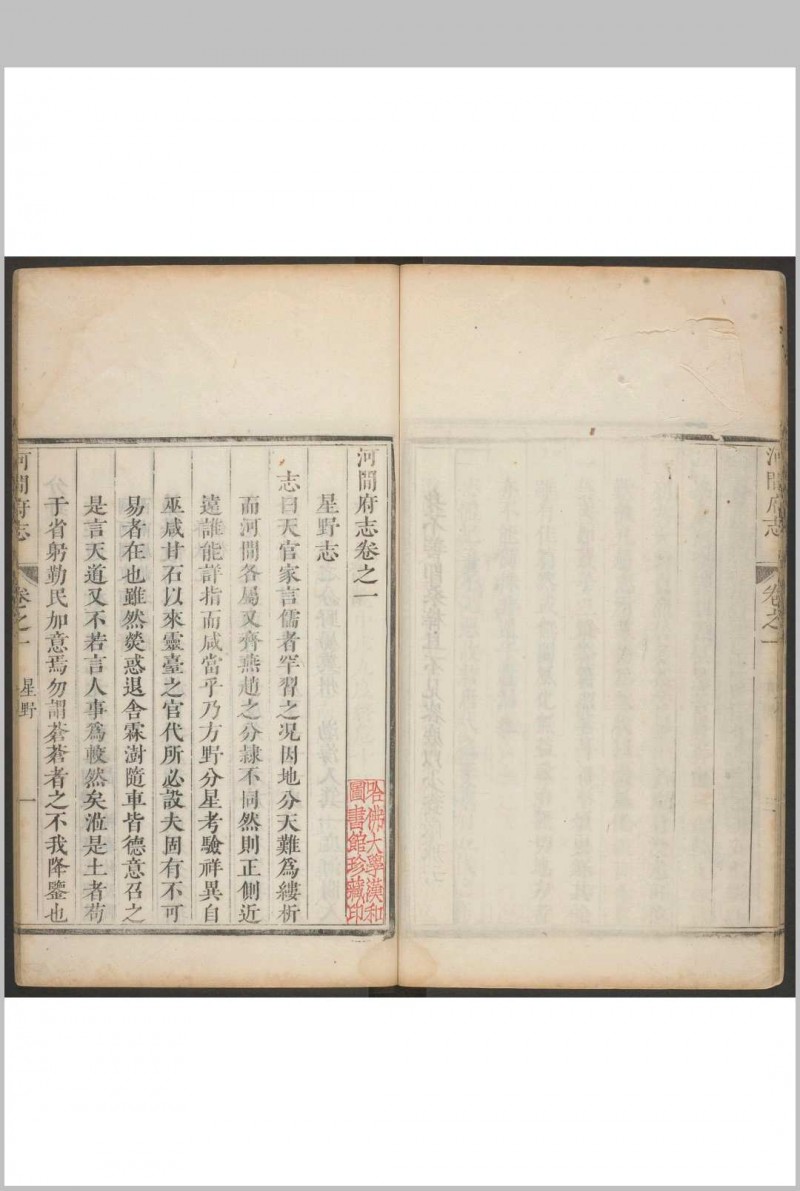 河間府志
卷之一
河間府志卷之一
星野志
志曰天官家言儒者罕習之況因地分天難爲縷析
而河間各屬又齊燕趙之分隷不同然則正側近
遠誰能詳指而咸當乎乃方野分星考驗祥異自
巫咸甘石以來靈臺之官代所必設夫固有不可
易者在也雖然熒惑退舍霖澍隨車皆德意召之
是言天道又不若言人事爲較然矣涖是土者苟
于省躬勤民加意焉勿謂蒼蒼者之不我降鑒也
哈佛大學漢和
圖書館珍藏印
河間府志
卷之一
星野
一